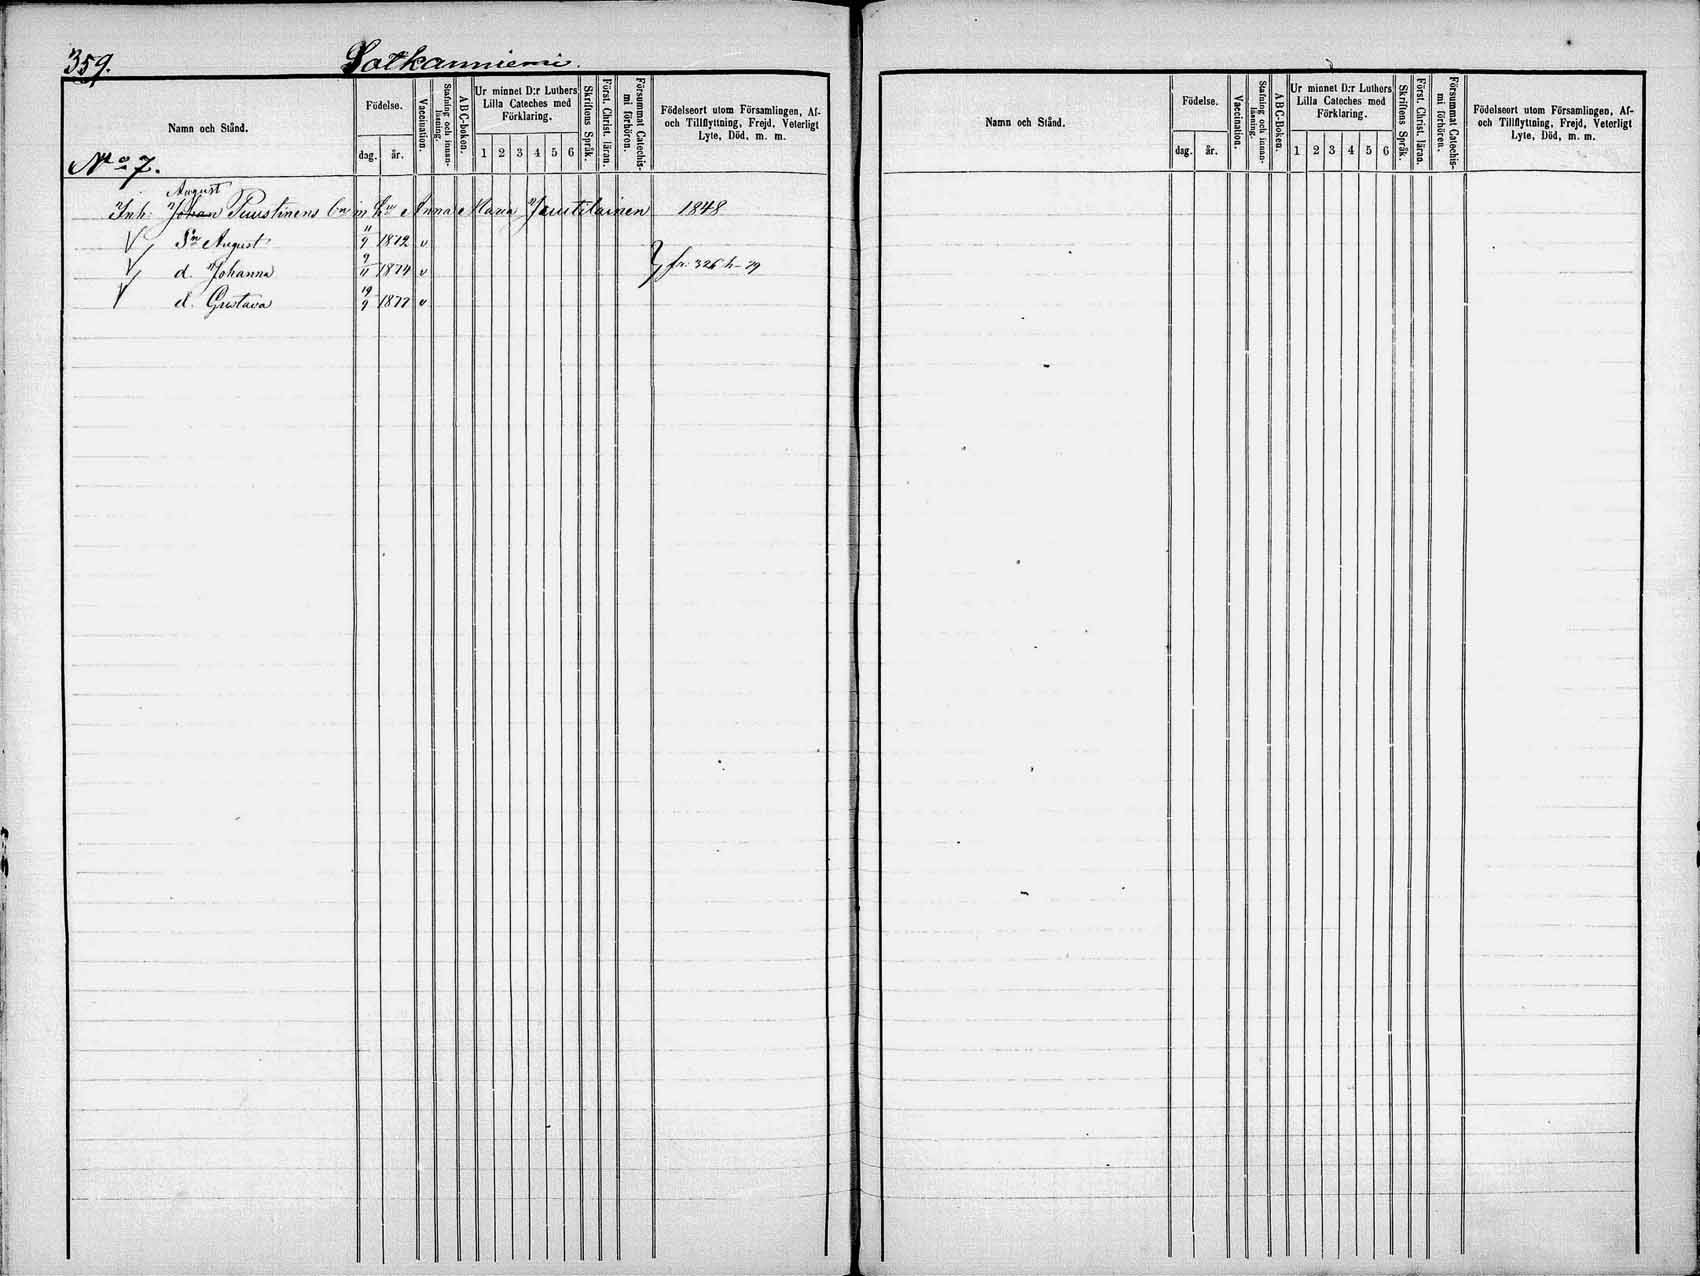 359. Sotkanniemi.
Namn och Stånd.
Födelse.
dag. år.
Vaccination.
Stafning och innan-läsning.
ABC-boken.
Ur minnet D:r Luthers Lilla Cateches med Förklaring.
1 2 3 4 5 6
Skriftens Språk.
Först. Christ. läran.
Försumat Catechis-mi förhören.
Födelseort utom Församlingen, Af- och Tillflyttning, Frejd, Veterligt Lyte, Död, m. m.
No 7.
August
Inh: Johan Puustinens Anna Maria Jauutilainen 1848
Sn August 11/9 1872 v
d. Johanna 9/11 1874 v fr: 326 h-79
d. Gustava 19/9 1877 v
Namn och Stånd.
Födelse.
dag. år.
Vaccination.
Stafning och innan-läsning.
ABC-boken.
Ur minnet D:r Luthers Lilla Cateches med Förklaring.
1 2 3 4 5 6
Skriftens Språk.
Först. Christ. läran.
Försumat Catechis-mi förhören.
Födelseort utom Församlingen, Af- och Tillflyttning, Frejd, Veterligt Lyte, Död, m. m.